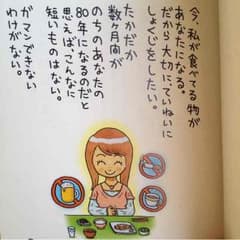 今、私が食べてる物が
あなたになる。
だから大切にていねいに
しょくじをしたい。
たかだか
数ヶ月間が
のちのあなたの
80年になるのだと
思えば、こんなに
短いものはない。
ガマンできない
わけがない。